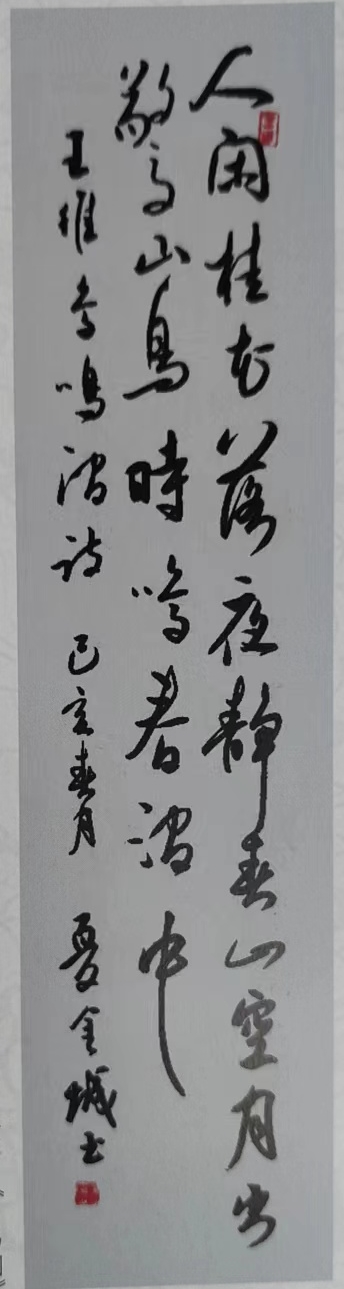 人闲桂花落夜静春山空月出
惊山鸟时鸣春涧中
王维鸟鸣涧诗 己亥春月 夏金城书